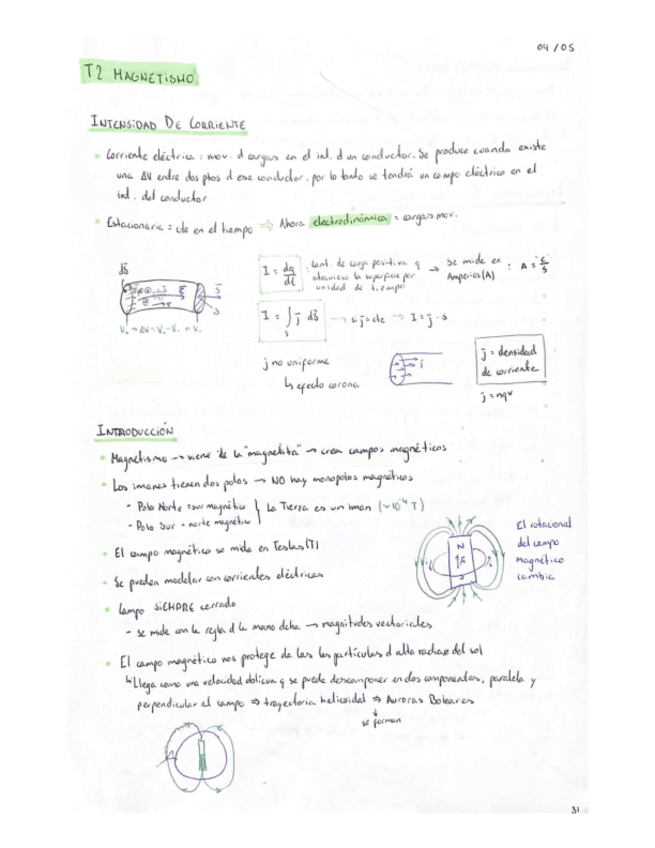 04/05
T2 MAGNETISMO
INTENSIDAD DE CORRIENTE
• Corriente eléctrica: mov. d cargas en el int. d un conductor. Se produce cuando existe
una ΔV entre dos ptos d ese conductor, por lo tanto se tendrá un campo eléctrico en el
int. del conductor
• Estacionaria = cte en el tiempo ⇒ Ahora electrodinámica = cargas mov.
I = dq/dt : Cant. de carga positiva q
atraviesa la superficie por
unidad de tiempo
→ Se mide en
Amperios (A) : A = C/S
I = ∫s j d𝑆 → si j = cte → I = j · s
j no uniforme
↳ efecto corona.
j = densidad
de corriente
j = nqv
INTRODUCCIÓN
• Magnetismo → viene de la "magnetita" → crea campos magnéticos
• Los imanes tienen dos polos → NO hay monopolos magnéticos
- Polo Norte = sur magnético
- Polo Sur = norte magnético
} La Tierra es un iman (~10⁻⁴ T)
• El campo magnético se mide en Teslas (T)
• Se pueden modelar con corrientes eléctricas
• Campo SIEMPRE cerrado
- se mide con la regla d la mano dcha → magnitudes vectoriales
N
El rotacional
del campo
magnético
cambia
• El campo magnético nos protege de las las partículas d alta radiac del sol
↳ Llega como una velocidad oblicua q se puede descomponer en dos componentes, paralela y
perpendicular al campo ⇒ trayectoria helicoidal ⇒ Auroras Boleares
↓
se forman
31